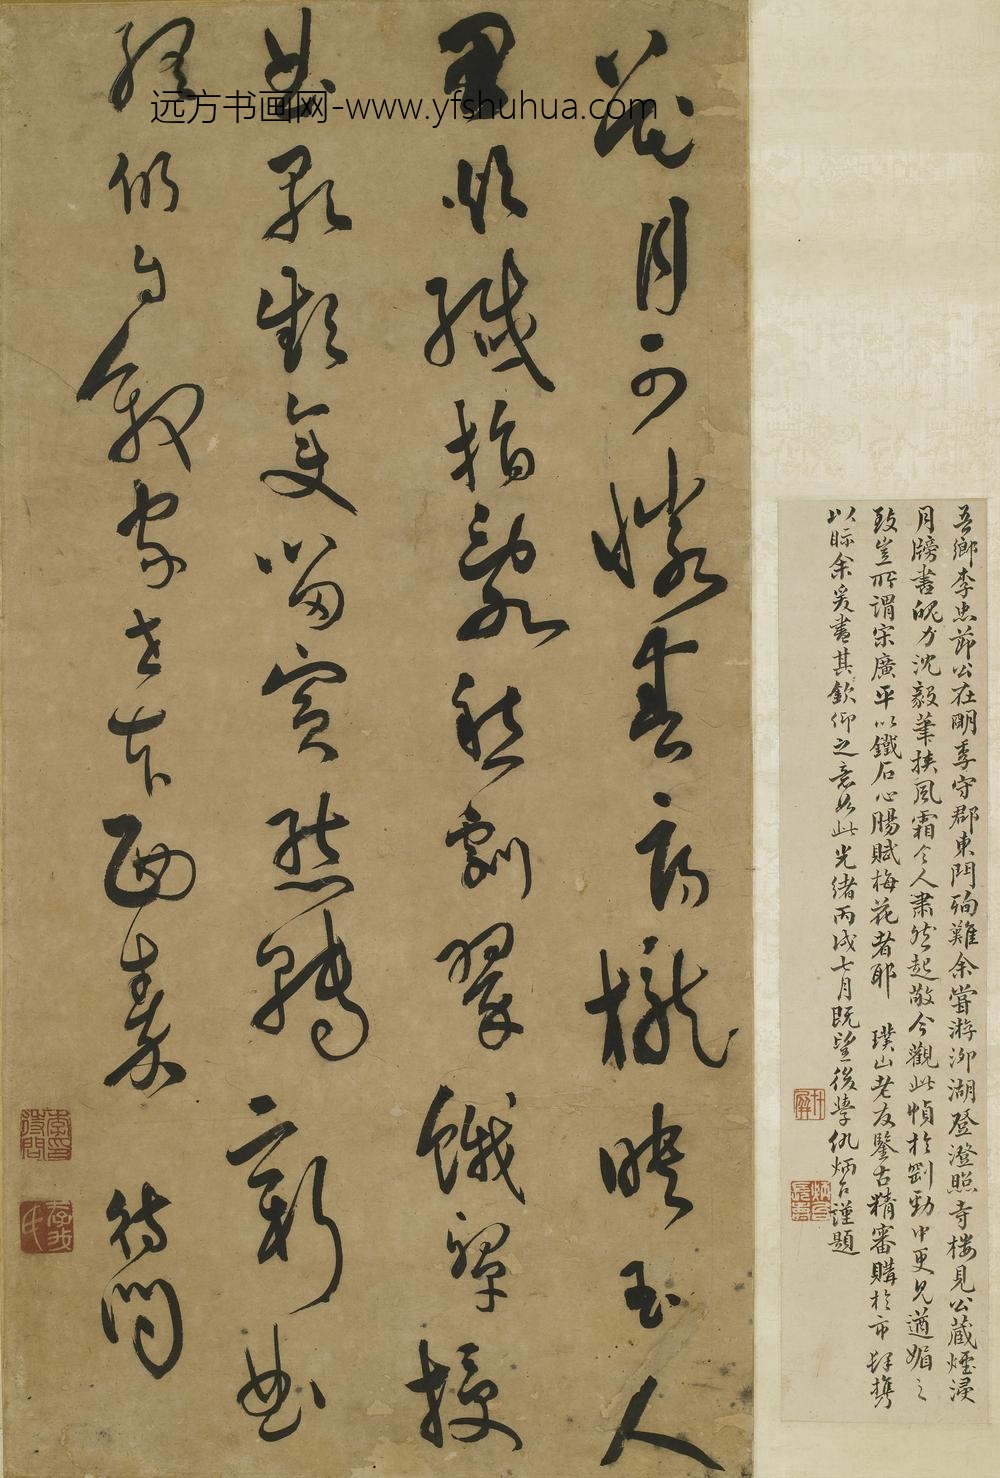 花月可憐春房櫳映玉人
纖指亂愁劇翠蛾顰授
歌頻變留賓態轉新曲
終仍自敘家世本西秦 待問
吾鄉李忠節公在明季守郡東門殉難余嘗游泖湖登澄照寺樓見公藏煙浸
月牓書魄力沈毅筆挾風霜令人肅然起敬今觀此幀於剛勁中更見遒媚之
致豈所謂宋廣平以鐵石心腸賦梅花者耶 璞山老友鑒古精審購於市攜
以眎余爰書其欽仰之意如此光緒丙戌七月既望後學仇炳台謹題
远方书画网-www.yfshuhua.com